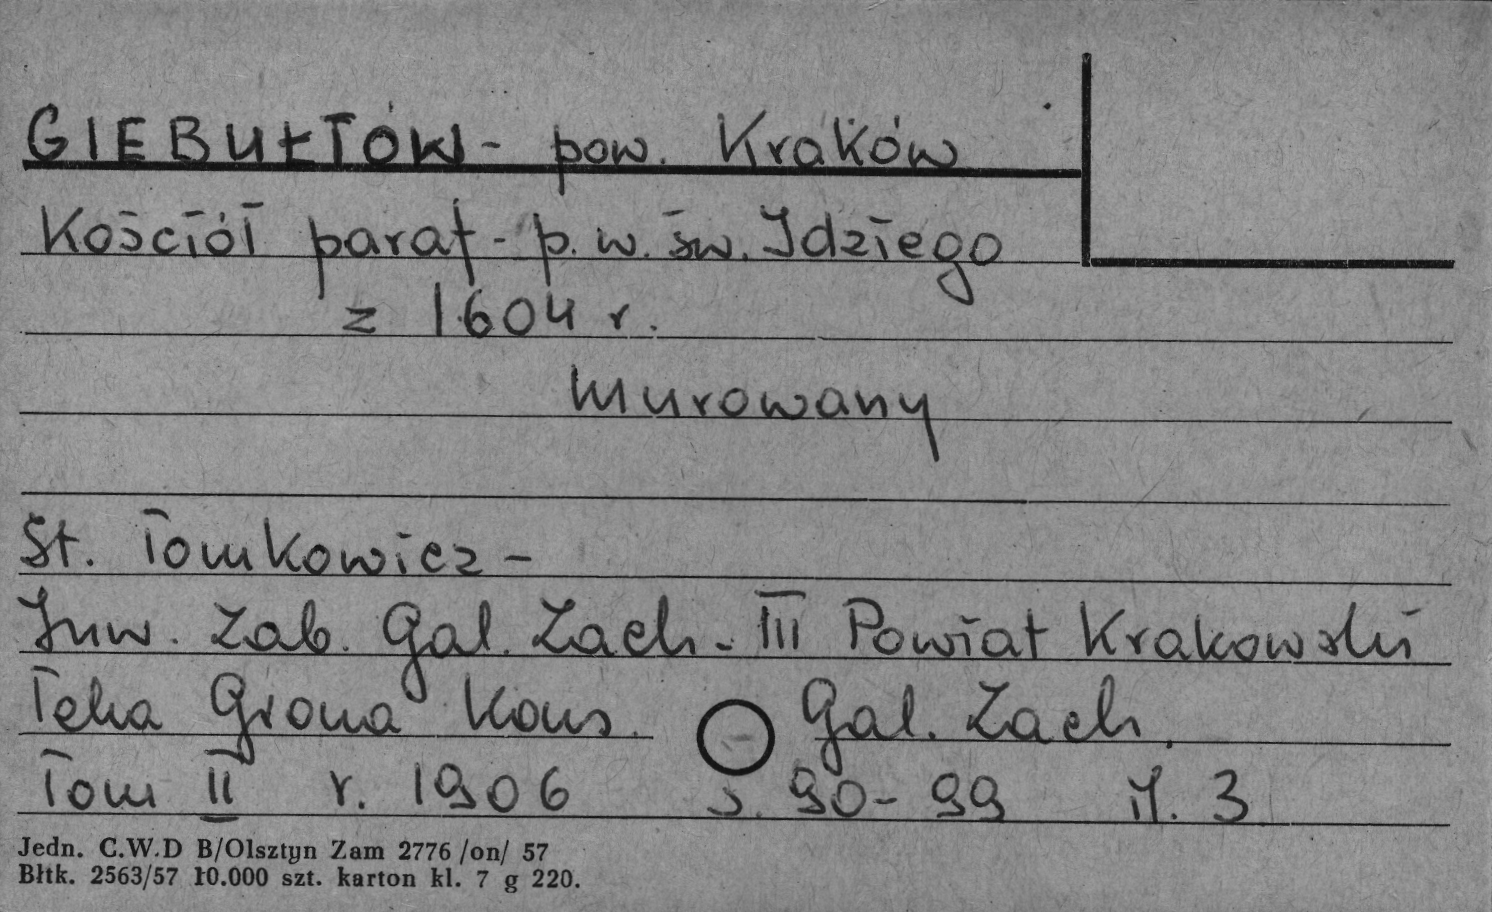 GIEBUŁTÓW - pow. Kraków
Kościół paraf - p.w. św. Idziego
z 1604 r.
murowany
St. Tomkowicz -
Inw. Zab. Gal. Zach. III Powiat Krakowski
Teka Grona Kons. Gal. Zach.
Tom II r. 1906 s. 90-99 il. 3
Jedn. C.W.D B/Olsztyn Zam 2776 /on/ 57
Błtk. 2563/57 10.000 szt. karton kl. 7 g 220.